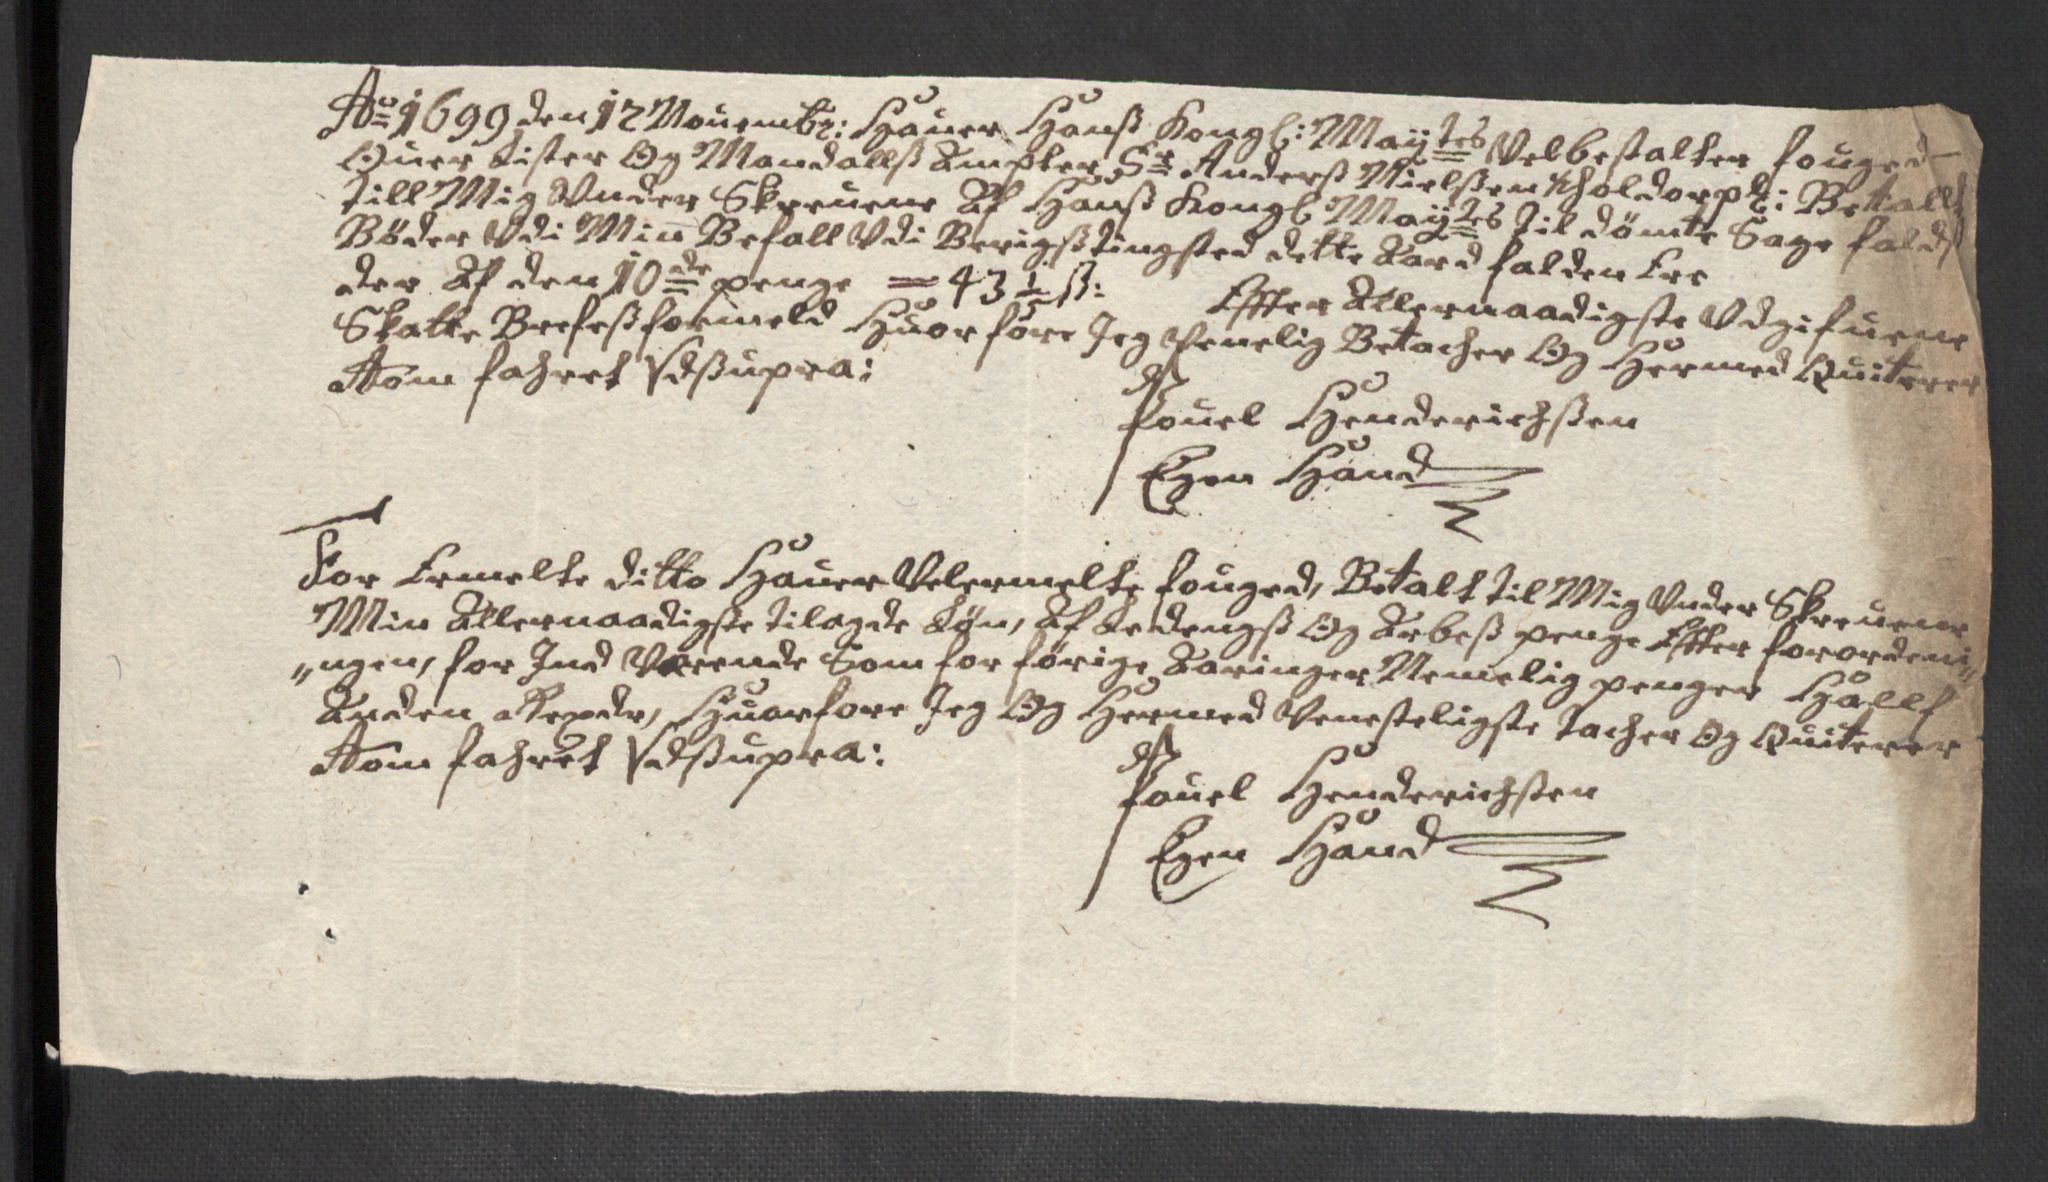 Ao 1699 den 12 Nouembr: Hauer Hanß Kongl: Maytes Velbestalter fouged
Ouer Lister Og Mandallß Ampter Sr Anderß Nielßen Kholdorph: Betallt
till Mig Vnder Skreuene Af Hanß Kongl: Maytes til dömte Sage falds
Böder Vdi Min Befall Vdi Berigß tingsted dette Aard falden Ere
der Af den 10de penge = 43 ½ ß: Effter Allernaadigste Vdgifuene
Skatte Brefeß formeld Huorföre Jeg Venelig Betacher Og Hermed Quiterer
Aom fahret Vdßupra:
Pouel Henderichßen
Egen Hand
For Ermelte ditto Hauer Velermelte fouged, Betalt til Mig Vnder Skreuene
Min Allernaadigste tilagde Løn, Af Ledengß Og Arbeß penge Effter forordeni„
„ngen, for Ind Verende Som for förige Aaringer Nemelig penger Hallf
Anden Rixdr, Huorfore Jeg Og Hermed Venesteligste Tacher Og Quiterer
Aom fahret Vdßupra:
Pouel Henderichßen
Egen Hand